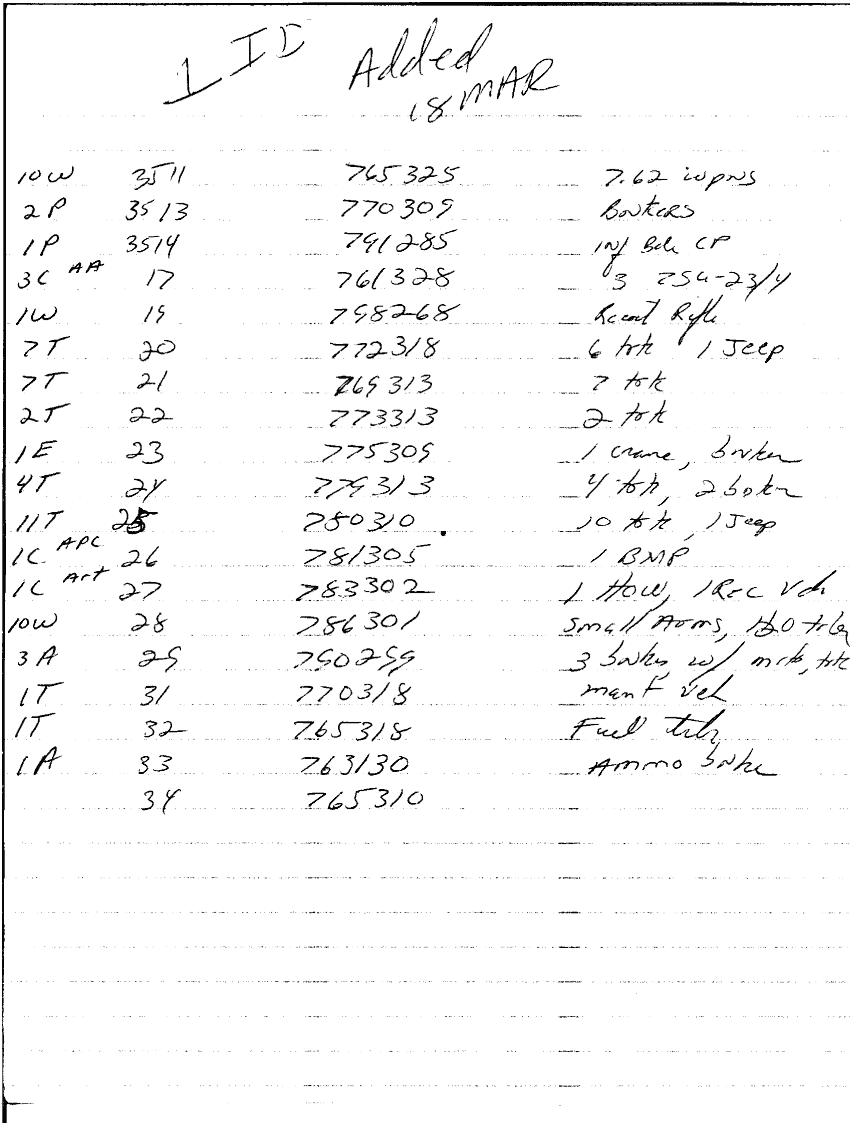 1 ID Added
18 MAR
10W 3511 765325 7.62 wpns
2P 3513 770309 Bonkers
1P 3514 791285 inf Bde CP
3C AA 17 761328 3 ZSU-23/4
1W 19 798268 Recoil Rifle
7T 20 772318 6 trk 1 Jeep
7T 21 769313 7 trk
2T 22 773313 2 trk
1E 23 775309 1 crane, bnker
4T 24 779313 4 trk, 2 bnker
11T 25 780310 10 trk, 1 Jeep
1C APC 26 781305 1 BMP
1C Art 27 783302 1 How, 1 Rec Veh
10W 28 786301 Small Arms, H20 trlr
3A 29 790299 3 bnkers w/ trk
1T 31 770318 maint veh
1T 32 765318 Fuel trlr
1A 33 763130 Ammo bnker
34 765310